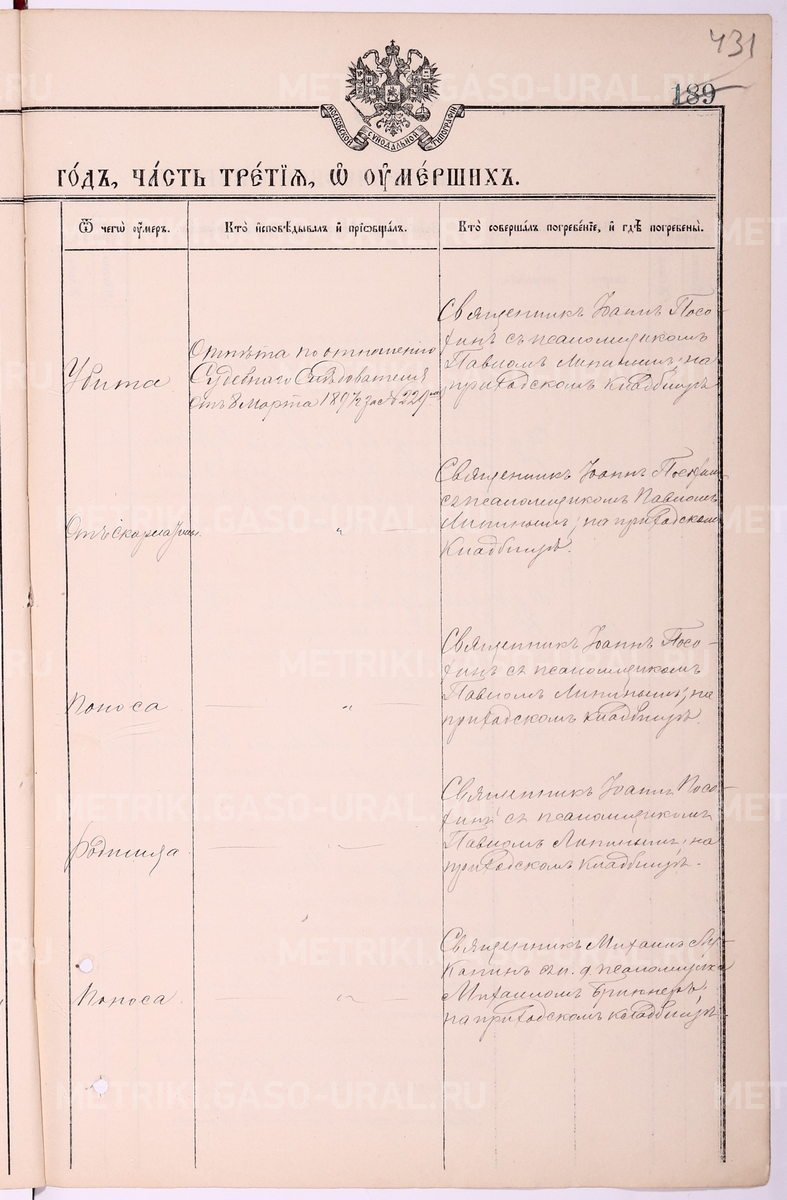 431
189
МОСКОВСКОЙ СѴНОДАЛЬНОЙ ТИПОГРАФІИ
го́дъ, ча́сть тре́тїѧ, ѡ҆ оу҆ме́ршихъ.
Ѿ чегѡ̀ оу҆́меръ.
Кто̀ и҆сповѣ́дывалъ и҆ прїѡбща́лъ.
Кто̀ соверша́лъ погребе́нїе, и҆ гдѣ̀ погребены̀.
Убита
Отпѣта по отношенію
Судебнаго Слѣдователя
отъ 8 Марта 1897 за № 229
Священникъ Іоаннъ Посо-
хинъ съ псаломщикомъ
Павломъ Липинымъ, на
приходскомъ кладбищѣ
Отъ скарлатины.
"
Священникъ Іоаннъ Посохинъ
съ псаломщикомъ Павломъ
Липинымъ, на приходскомъ
кладбищѣ.
Поноса
"
Священникъ Іоаннъ Посо-
хинъ съ псаломщикомъ
Павломъ Липинымъ, на
приходскомъ кладбищѣ.
Родимца
"
Священникъ Іоаннъ Посо-
хинъ съ псаломщикомъ
Павломъ Липинымъ, на
приходскомъ кладбищѣ.
Поноса
"
Священникъ Михаилъ
съ и. д. псаломщика
Михаиломъ
на приходскомъ кладбищѣ.
METRIKI.GASO-URAL.RU